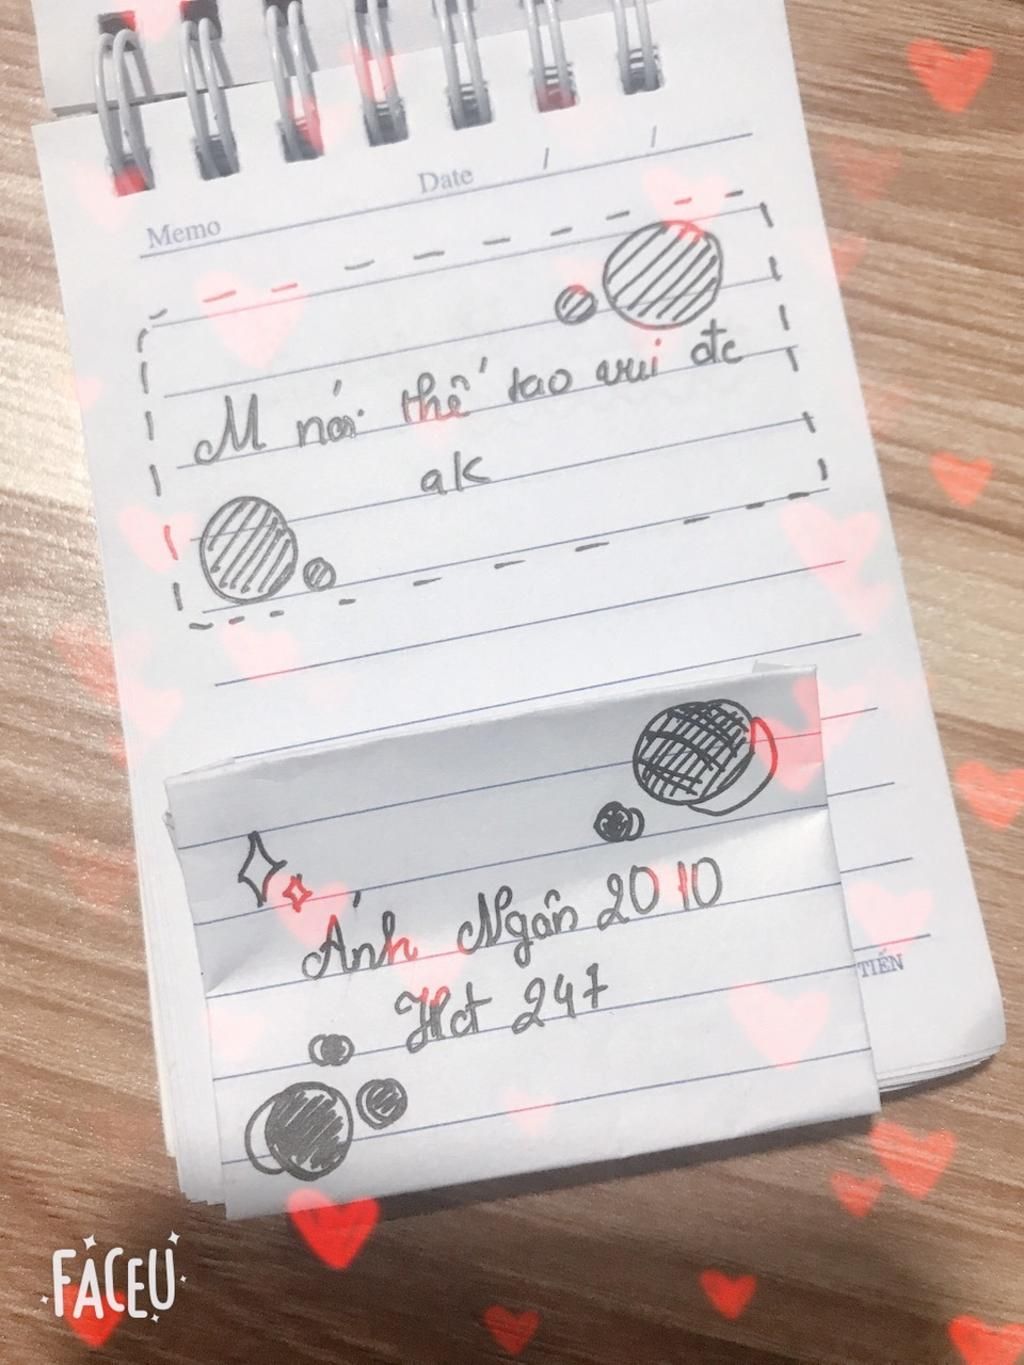 Memo
Date / /
M nói thế tao vui đc
ak
Ánh Ngân 2010
Hct 247
TIẾN
FACEU